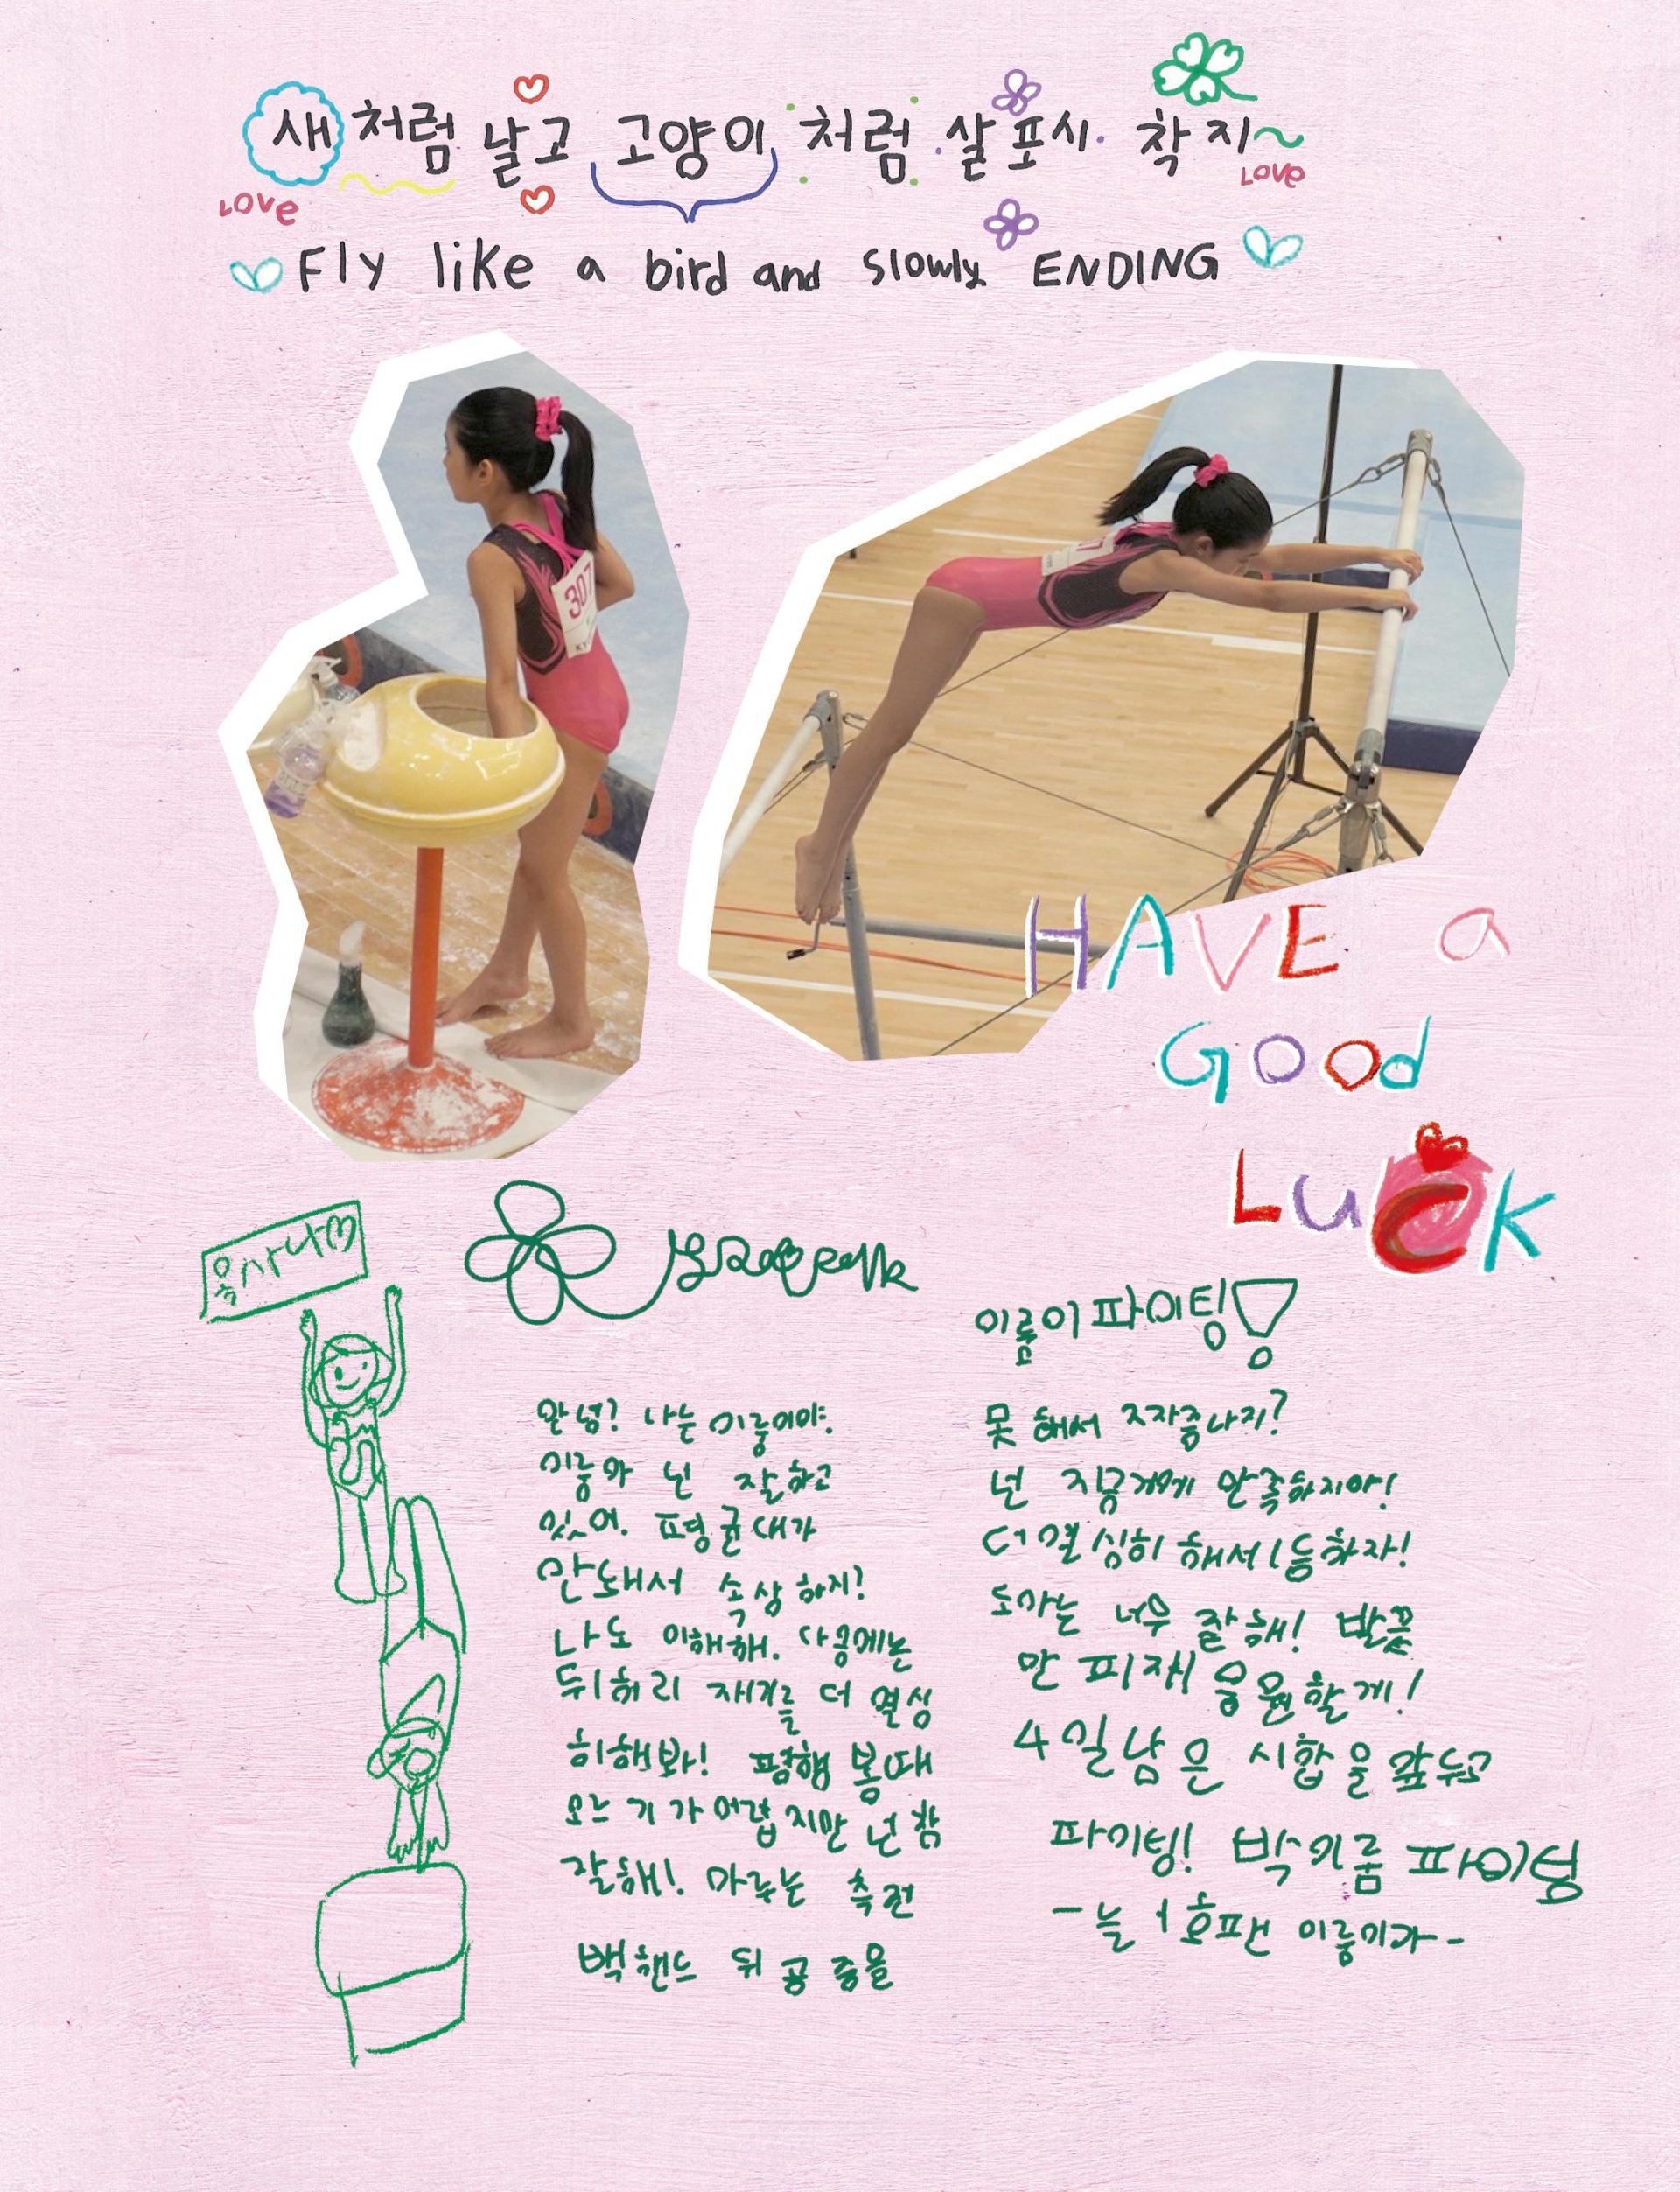 새처럼 날고 고양이처럼 살포시 착지~
LOVE
LOVE
Fly like a bird and slowly ENDING
307
KY
HAVE a
GOOd
LucK
이룸이 파이팅!
안녕? 나는 이룸이야.
이룸아 넌 잘하고
있어. 평균대가
안돼서 속상하지?
나도 이해해. 다음에는
뒤허리 재기를 더 열심
히해봐! 평행봉때
오느기가 어렵지만 넌 참
잘해! 마루는 측전
백핸드 뒤공중을
못해서 짜증나지?
넌 지금에게 만족하지마!
더 열심히 해서 1등하자!
도마는 너무 잘해! 발끝
만 피재! 응원할게!
4일남은 시합을 앞두고
파이팅! 박이룸 파이팅
-늘 1호팬 이룸이가-